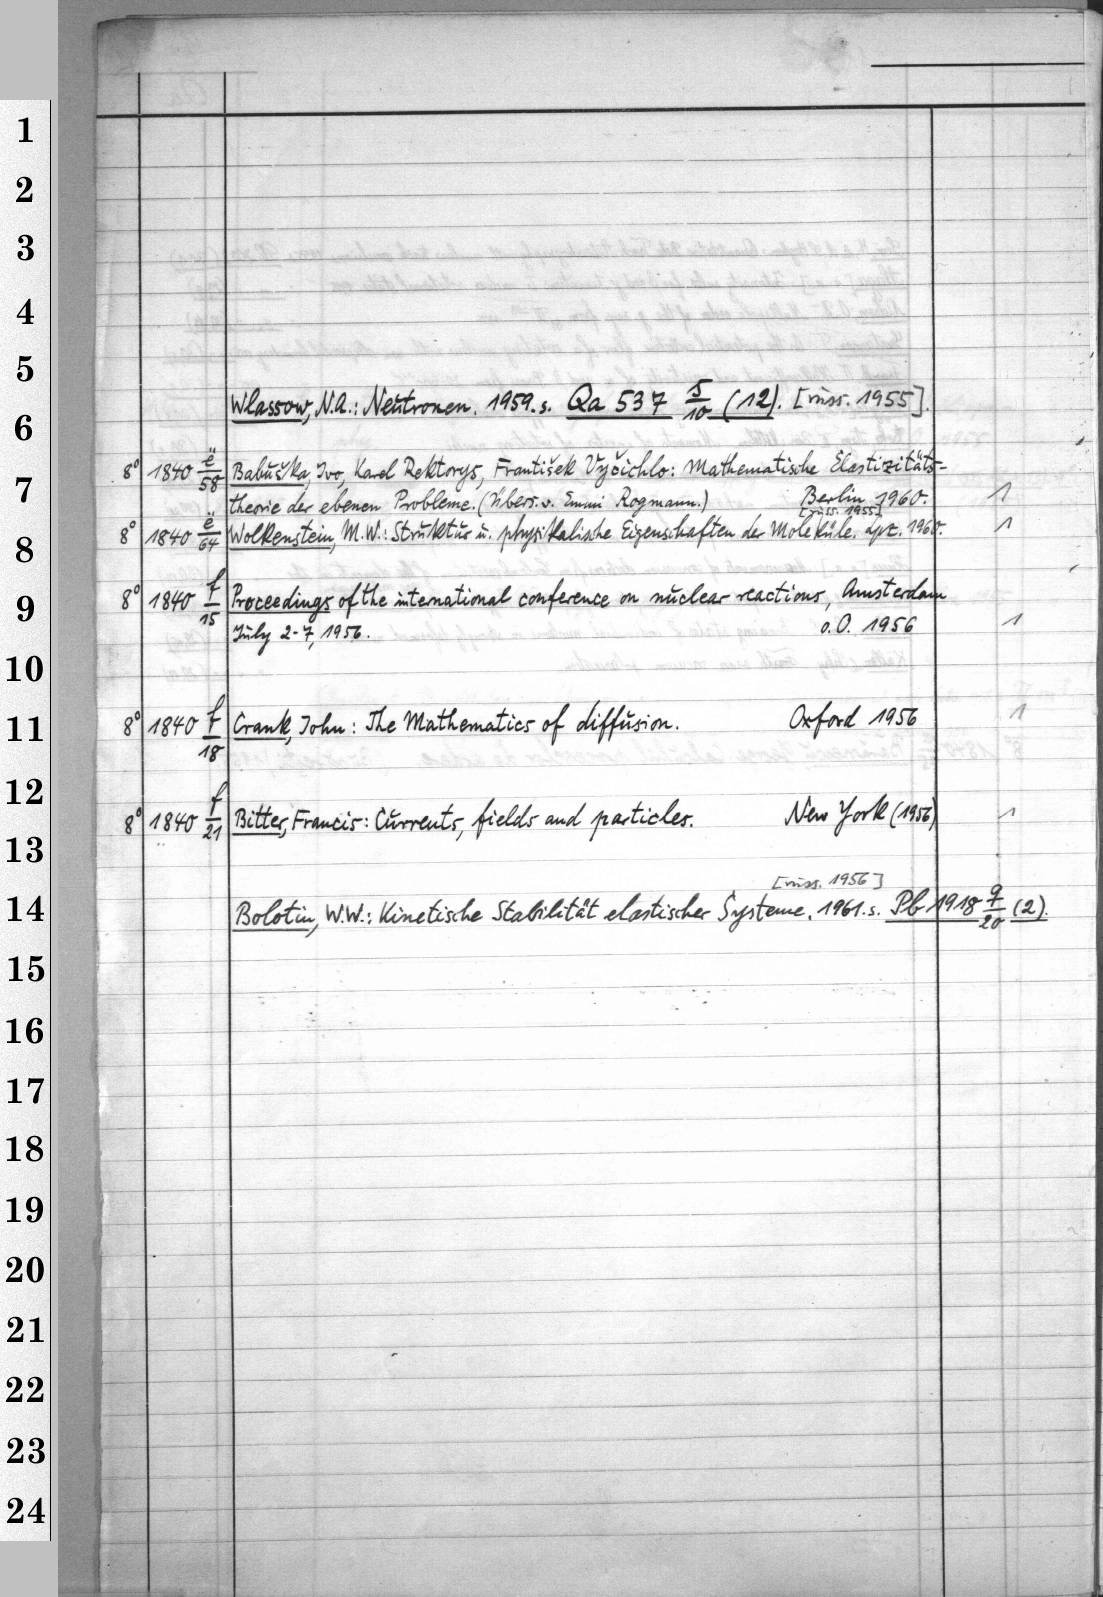 1
2
3
4
5
Wlassow, N.A.: Neutronen. 1959. s. Qa 537 5/10 (12). [russ. 1955].
6
8° 1840 ë/58 Babuška, Ivo, Karel Rektorys, František Vyčichlo: Mathematische Elastizitäts-
7 theorie der ebenen Probleme. (Übers. v. Emmi Rogmann.) Berlin 1960. 1
[russ. 1955]
8 8° 1840 ë/64 Wolkenstein, M.W.: Struktur u. physikalische Eigenschaften der Moleküle. Lpz. 1960. 1
9 8° 1840 f/15 Proceedings of the international conference on nuclear reactions, Amsterdam
July 2-7, 1956. o.O. 1956 1
10
11 8° 1840 f/18 Crank, John: The Mathematics of diffusion. Oxford 1956 1
12
8° 1840 f/21 Bitter, Francis: Currents, fields and particles. New York (1956) 1
13
[russ. 1956]
14 Bolotin, W.W.: Kinetische Stabilität elastischer Systeme. 1961. s. Pb 1918 q/20 (2).
15
16
17
18
19
20
21
22
23
24